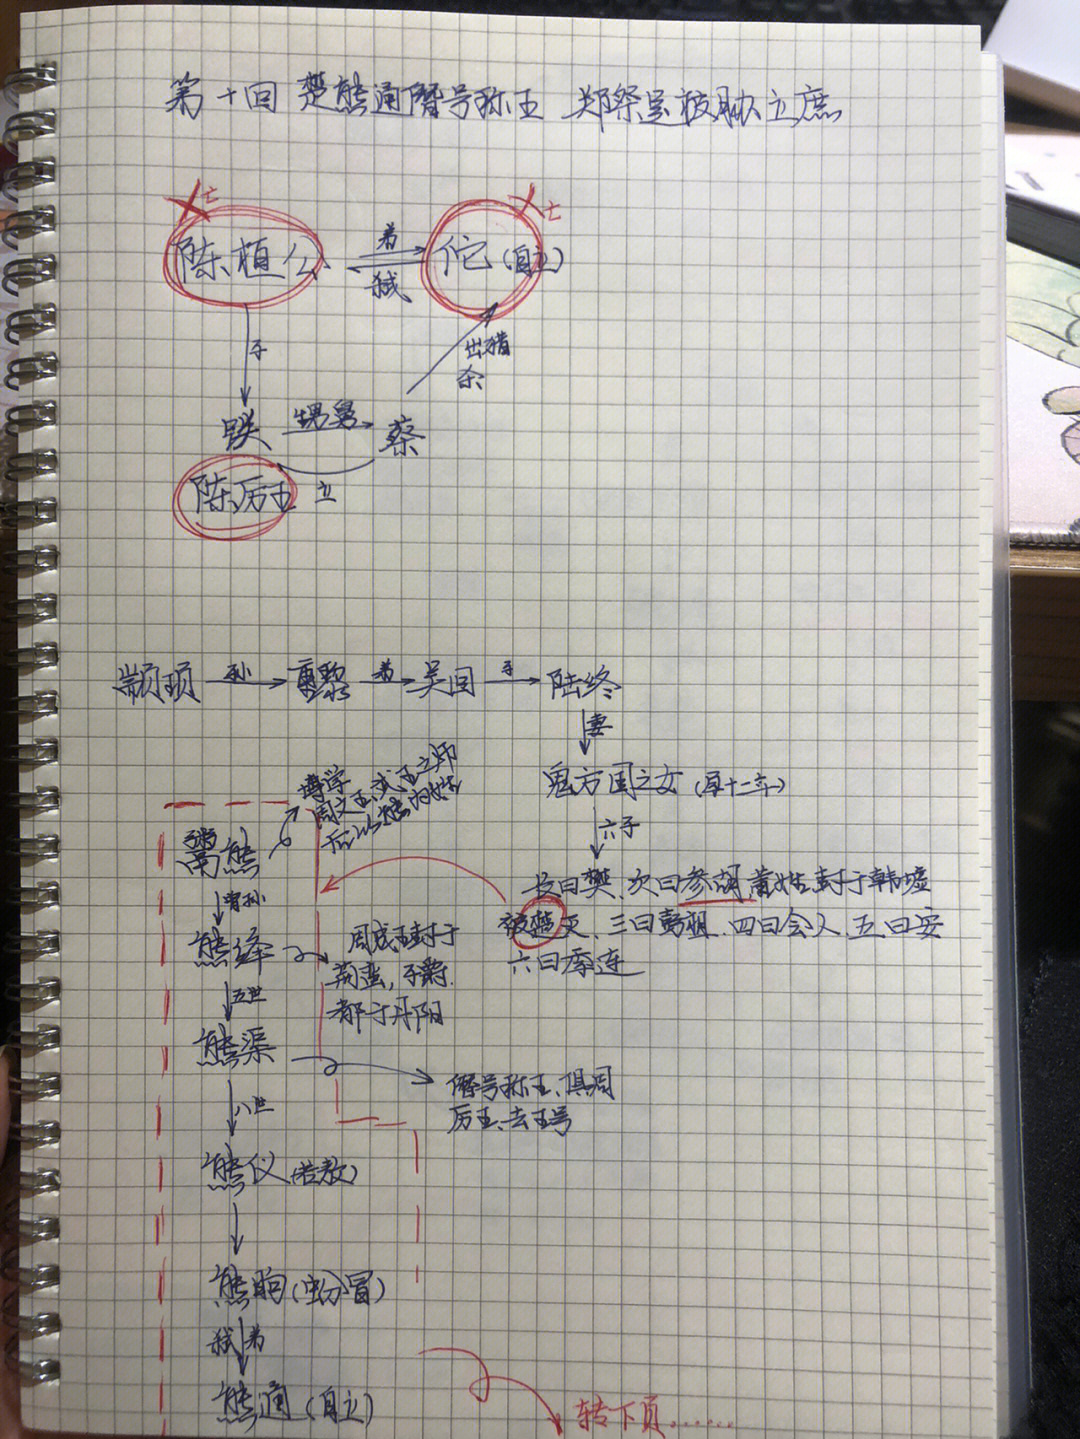 第十回 楚熊通僭号称王 郑祭足被胁立庶
亡
亡
陈桓公
弟
弑
佗(自立)
子
出猎
杀
跃
甥舅
蔡
陈厉王
立
颛顼
孙
重黎
弟
吴回
子
陆终
妻
鬼方国之女(孕十一年)
六子
长曰樊、次曰参胡董姓封于韩墟
被楚灭、三曰彭祖、四曰会人、五曰安
六曰季连
博学
周文王、武王之师
后以熊为姓
鬻熊
曾孙
熊绎
周成王封于
荆蛮,子爵.
都于丹阳
五世
熊渠
僭号称王、惧周
厉王、去王号
八世
熊仪(若敖)
熊眴(蚡冒)
弑
弟
熊通(自立)
转下页......